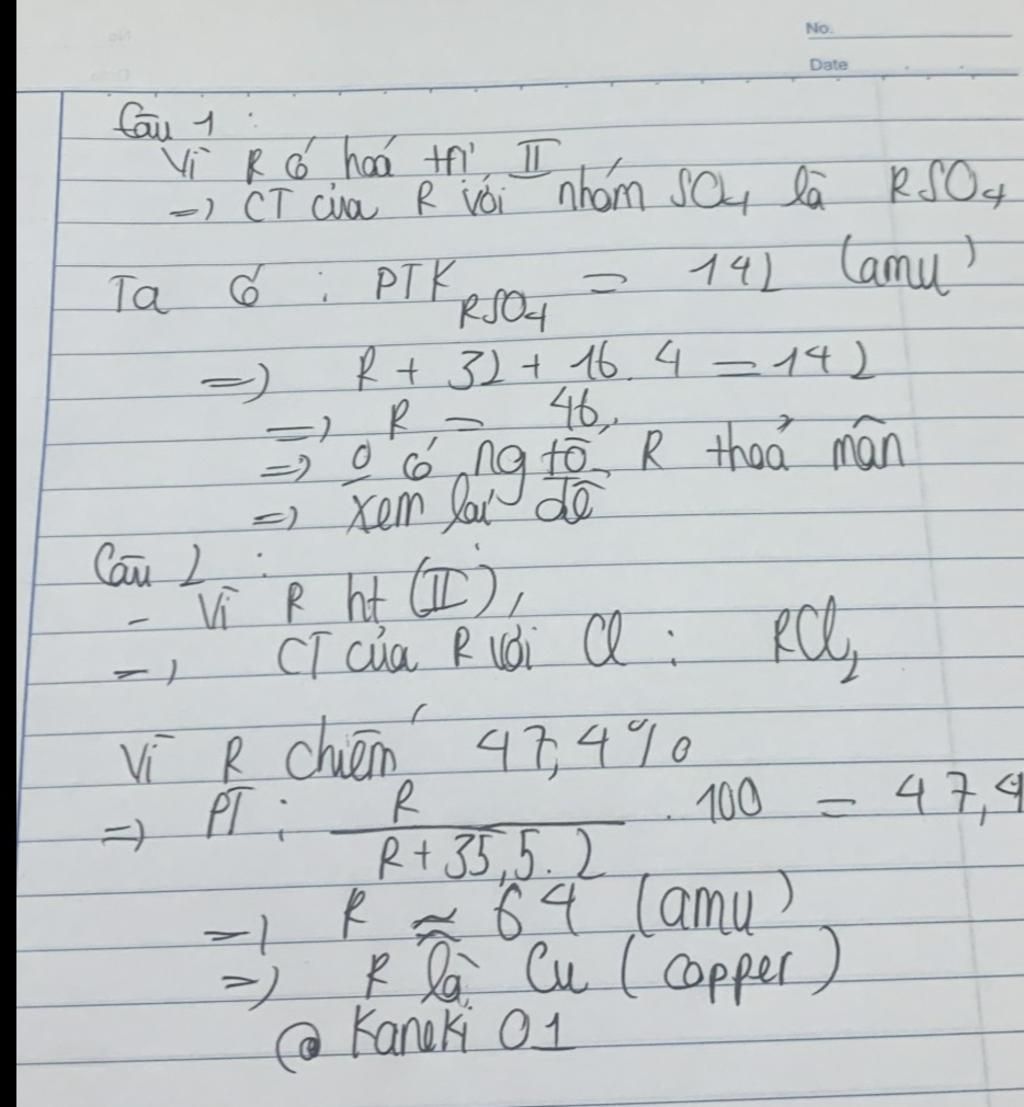 No.
Date
Câu 1 :
Vì R có hoá trị II
=> CT của R với nhóm SO4 là RSO4
Ta có : PTK RSO4 = 142 (amu)
=> R + 32 + 16.4 = 142
=> R = 46,
=> o có ng tố R thoả mãn
=> xem lại đề
Câu 2 :
- Vì R ht (II),
=> CT của R với Cl : RCl2
Vì R chiếm 47,4%
=> PT : R / R + 35,5.2 . 100 = 47,4
=> R ≈ 64 (amu)
=> R là Cu (copper)
@ Kaneki 01